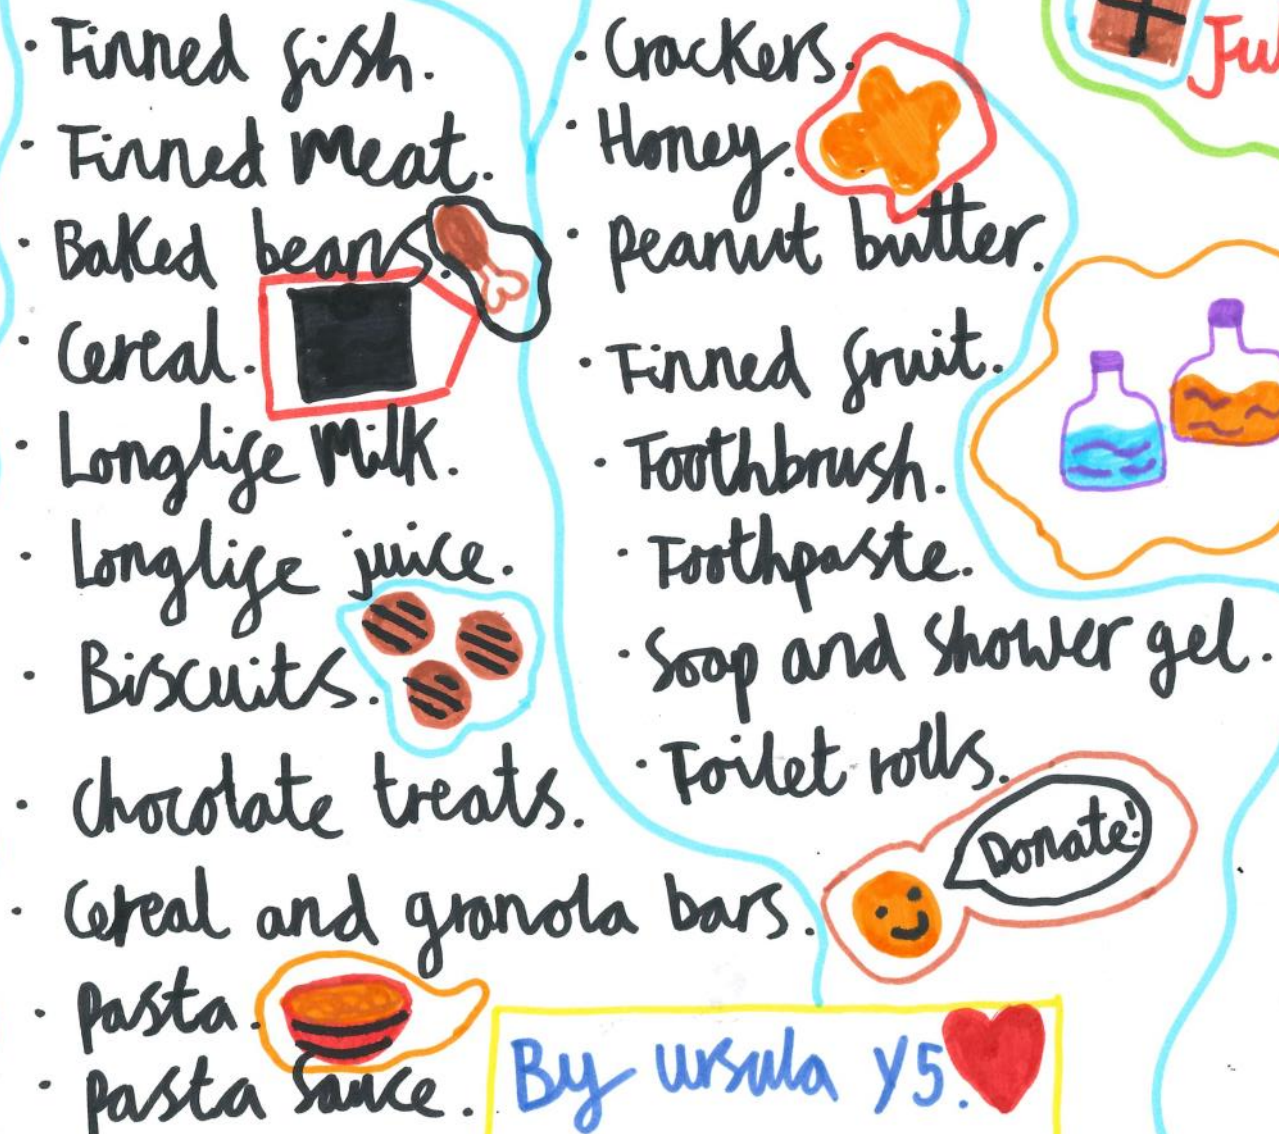 · Tinned fish.
· Tinned meat.
· Baked beans.
· Cereal.
· Longlife milk.
· Longlife juice.
· Biscuits.
· chocolate treats.
· Cereal and granola bars.
· pasta.
· pasta sauce.
· Crackers.
· Honey.
· peanut butter.
· Tinned fruit.
· Toothbrush.
· Toothpaste.
· Soap and shower gel.
· Toilet rolls.
Donate!
By ursula Y5.